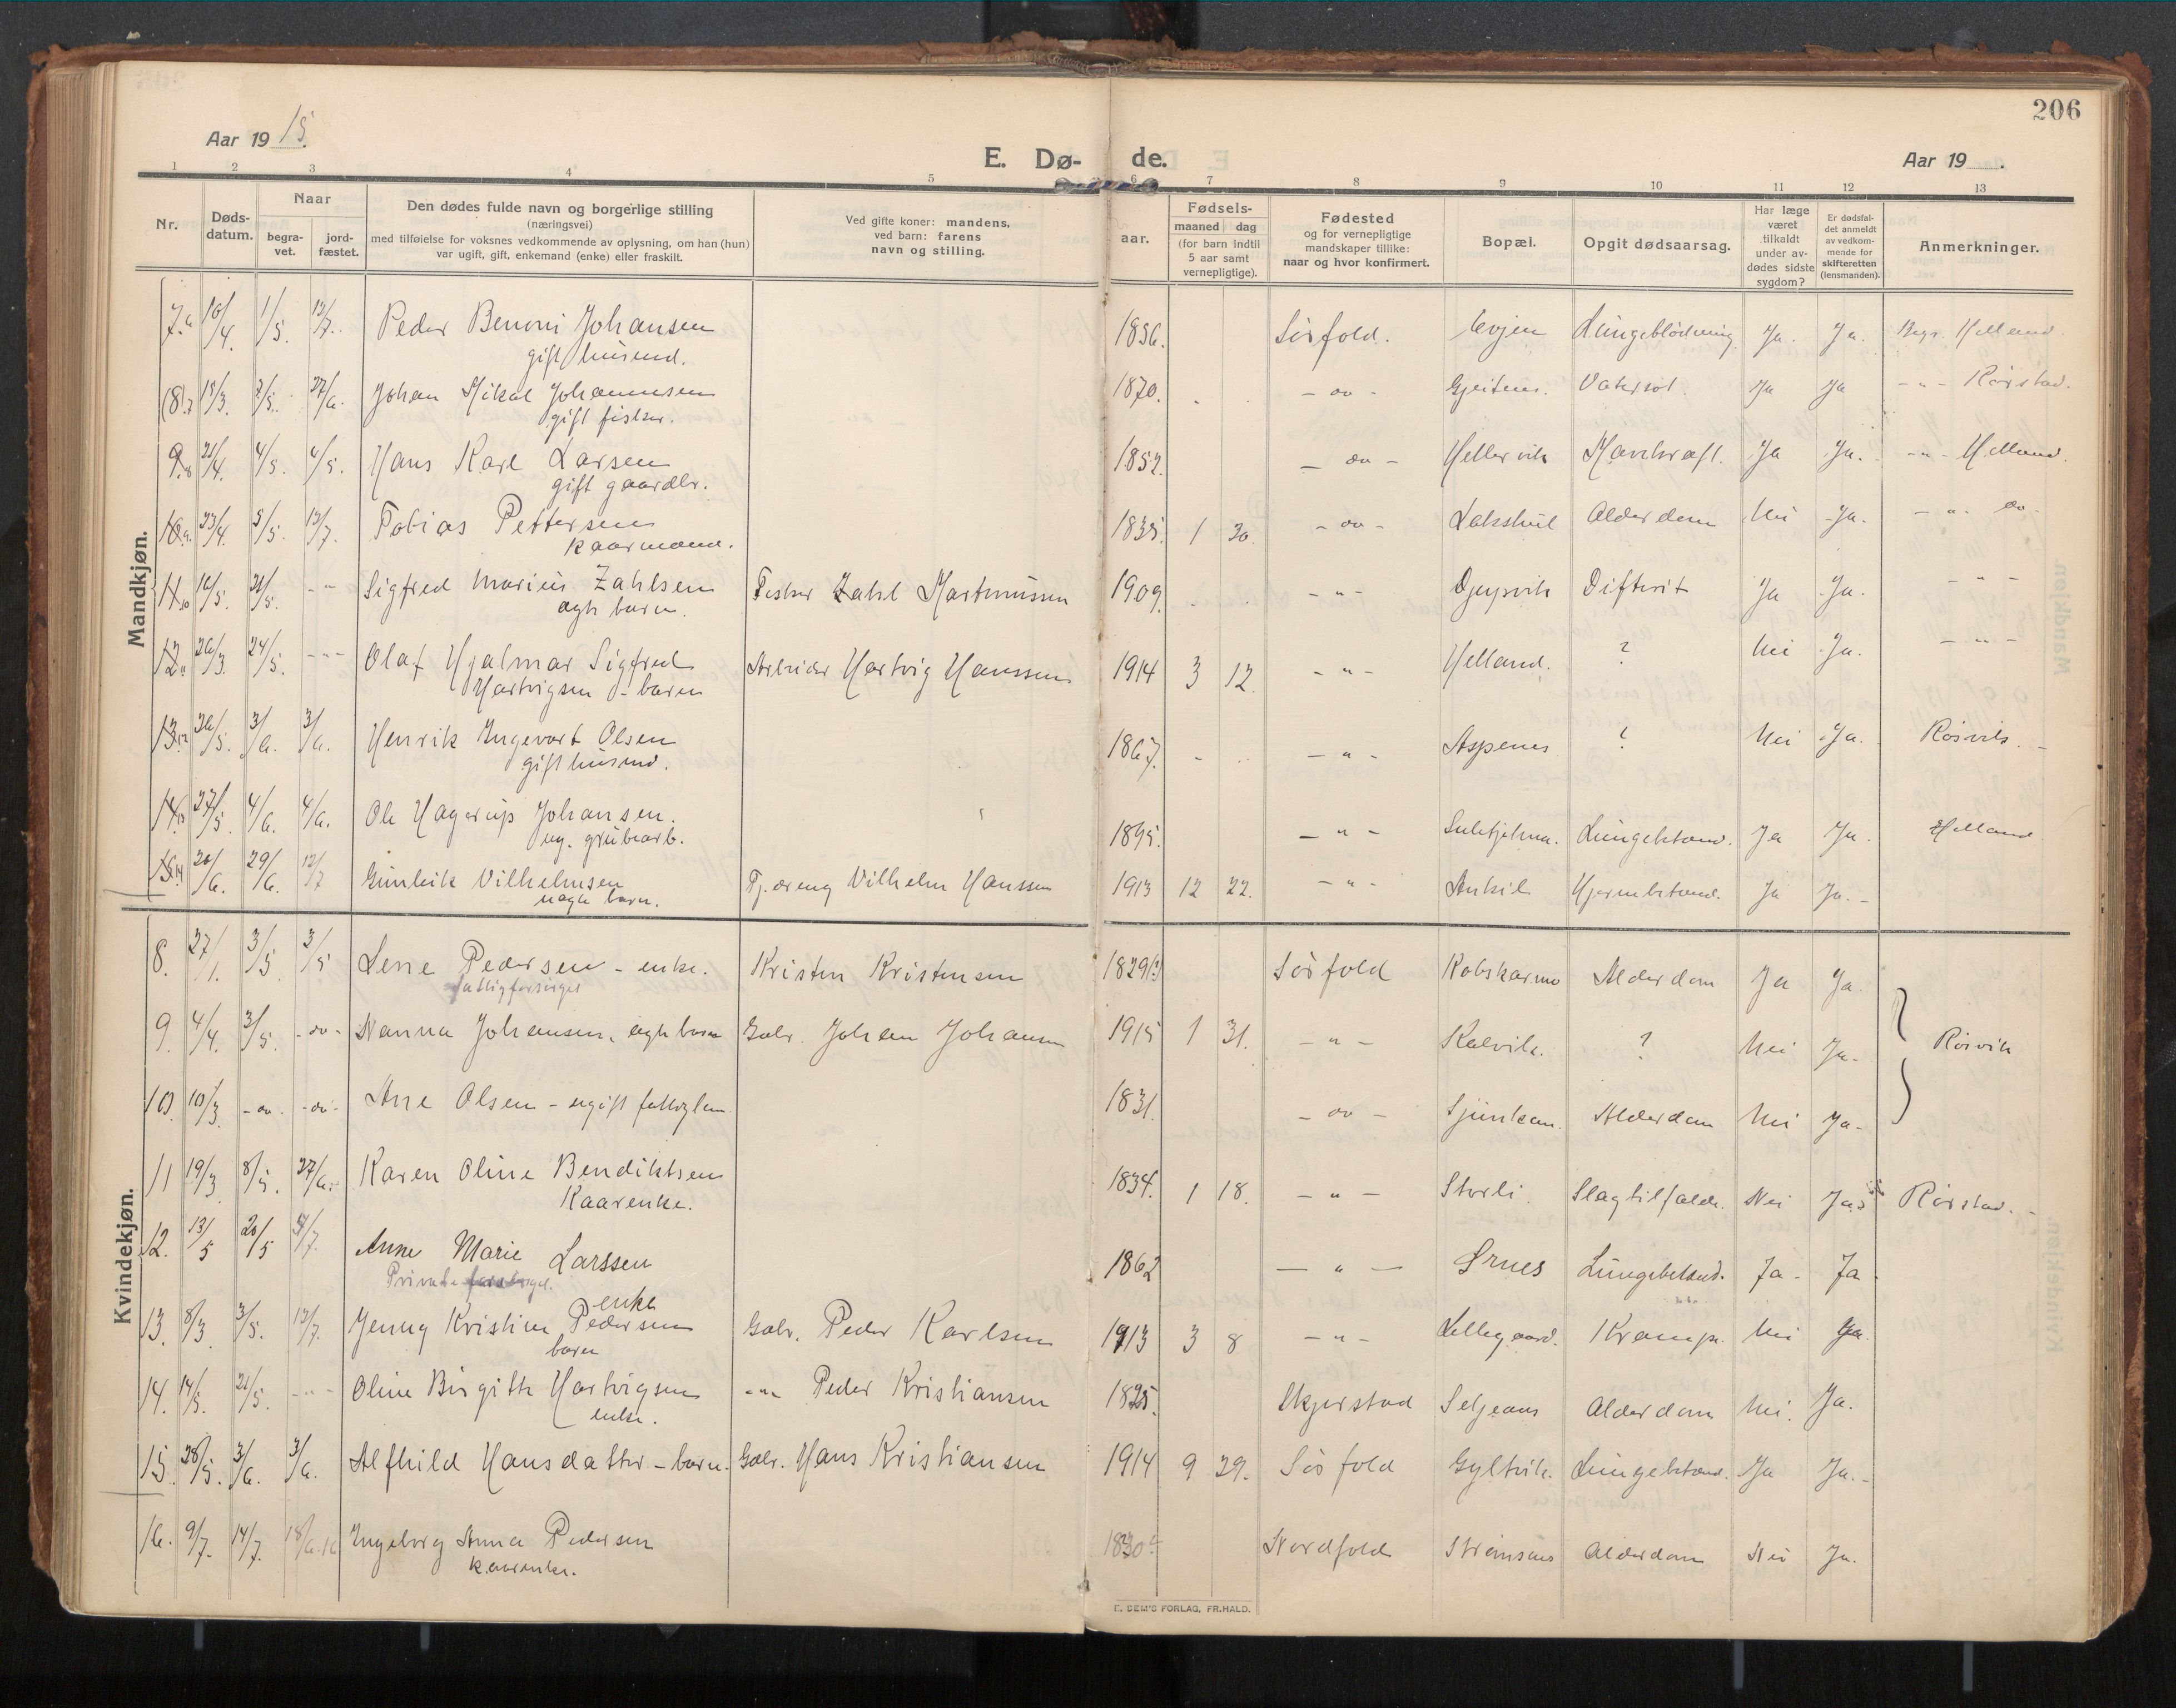 206
Aar 19 15.
E. Dø- de.
Aar 19 .
1 2 3 4 5 6 7 8 9 10 11 12 13
Nr.
Døds-
datum.
Naar
begra-
vet.
jord-
fæstet.
Den dødes fulde navn og borgerlige stilling
(næringsvei)
med tilføielse for voksnes vedkommende av oplysning, om han (hun)
var ugift, gift, enkemand (enke) eller fraskilt.
Ved gifte koner: mandens,
ved barn: farens
navn og stilling.
aar.
Fødsels-
maaned dag
(for barn indtil
5 aar samt
vernepligtige).
Fødested
og for vernepligtige
mandskaper tillike:
naar og hvor konfirmert.
Bopæl.
Opgit dødsaarsag.
Har læge
været
tilkaldt
under av-
dødes sidste
sygdom?
Er dødsfal-
det anmeldt
av vedkom-
mende for
skifteretten
(lensmanden).
Anmerkninger.
Mandkjøn.
7. 16/4. 1/5. 13/7. Peder Benoni Johansen 1856. Sörfold. Evjen Lungeblödning Ja. Ja. Begr. Helland.
gift husmd.
(8). 7 15/3. 2/5. 27/6. Johan Mikal Johannesen 1870. - do - Gjeitnes. Vatersot. Ja Ja - " - Rörstad.
gift fisker.
9. 8 21/4. 4/5. 4/5. Hans Karl Larsen 1852. - do - Hellarvik Mavekræft. Ja Ja. - " - Helland.
gift gaardbr.
10. 9. 23/4. 5/5. 13/7. Tobias Pettersen 1835. 1 30. - do - Lakshul Alderdom Nei Ja. - " - do.
kaarmand.
11. 10 16/5. 21/5. - " Sigfred Marius Zahlsen Fisker Zahl Martinussen 1909. - " - Djupvik Difterit Ja Ja. - " -
ægte barn.
12. 11 26/3. 24/5. - " - Olaf Hjalmar Sigfred Arbeider Hartvig Hanssen 1914 3 12. - " - Helland. ? Nei Ja. - " -
Hartvigsen - barn
13. 12 26/5. 3/6. 3/6. Henrik Ingevart Olsen 1867. - " - Aspenes ? Nei Ja. Rösvik.
gift husmd.
14. 13 27/5. 4/6. 4/6. Ole Hagerup Johansen. 1895. - " - Sulitjelma. Lungebetænd. Ja Ja. Helland
ug. grubearb.
15. 14 20/6. 29/6. 13/7 Gunleik Vilhelmsen Vilhelm Hanssen 1913 12 22. - " - Ankil Hjernbetænd. Ja Ja. -
uægte barn.
Kvindekjøn.
8. 27/1. 3/5. 3/5 Lene Pedersen - enke. Kristen Kristensen 1829(?) Sörfold Kobskarmo Alderdom Ja Ja
fattigforsörget
9. 4/4. 3/5. - do - Nanna Johansen, ægte barn Gdbr. Johan Johansen 1915 1 31. - " - Kalvik. ? Nei Ja - Rösvik
10. 10/3. - do - - do - Ane Olsen - ugift fattiglem 1831. - do - Sjunkan. Alderdom Nei Ja -
11 19/3 8/5. 27/6. Karen Oline Bendiktsen 1834. 1 18. - " - Storli. Slagtilfælde. Nei Ja Rörstad. -
Kaarenke.
12. 13/5 20/5 4/7. Anne Marie Larssen 1862 - " - Srnes Lungebetænd. Ja - Ja
Privat forsörget.
enke
13. 8/3 3/5. 13/7. Jenny Kristine Pedersen Gdbr. Peder Karlsen 1913 3 8 - " - Lillegaard. Krampe. Nei Ja.
barn
14. 14/5. 21/5. - " - Oline Birgitte Hartvigsen - " - Peder Kristiansen 1825. Skjerstad Seljeaas Alderdom Nei. Ja.
enke.
15. 28/5. 3/6. 3/6. Alfhild Hansdatter - barn. Gdbr. Hans Kristiansen 1914 9 29. Sörfold Gyltvik. Lungebetænd. Ja Ja. -
16. 9/7. 14/7. 18/6.16 Ingeborg Anna Pedersen 1830 Nordfold Strömsnes Alderdom Nei Ja.
kaarenke.
E. SEM'S FORLAG, FR.HALD.